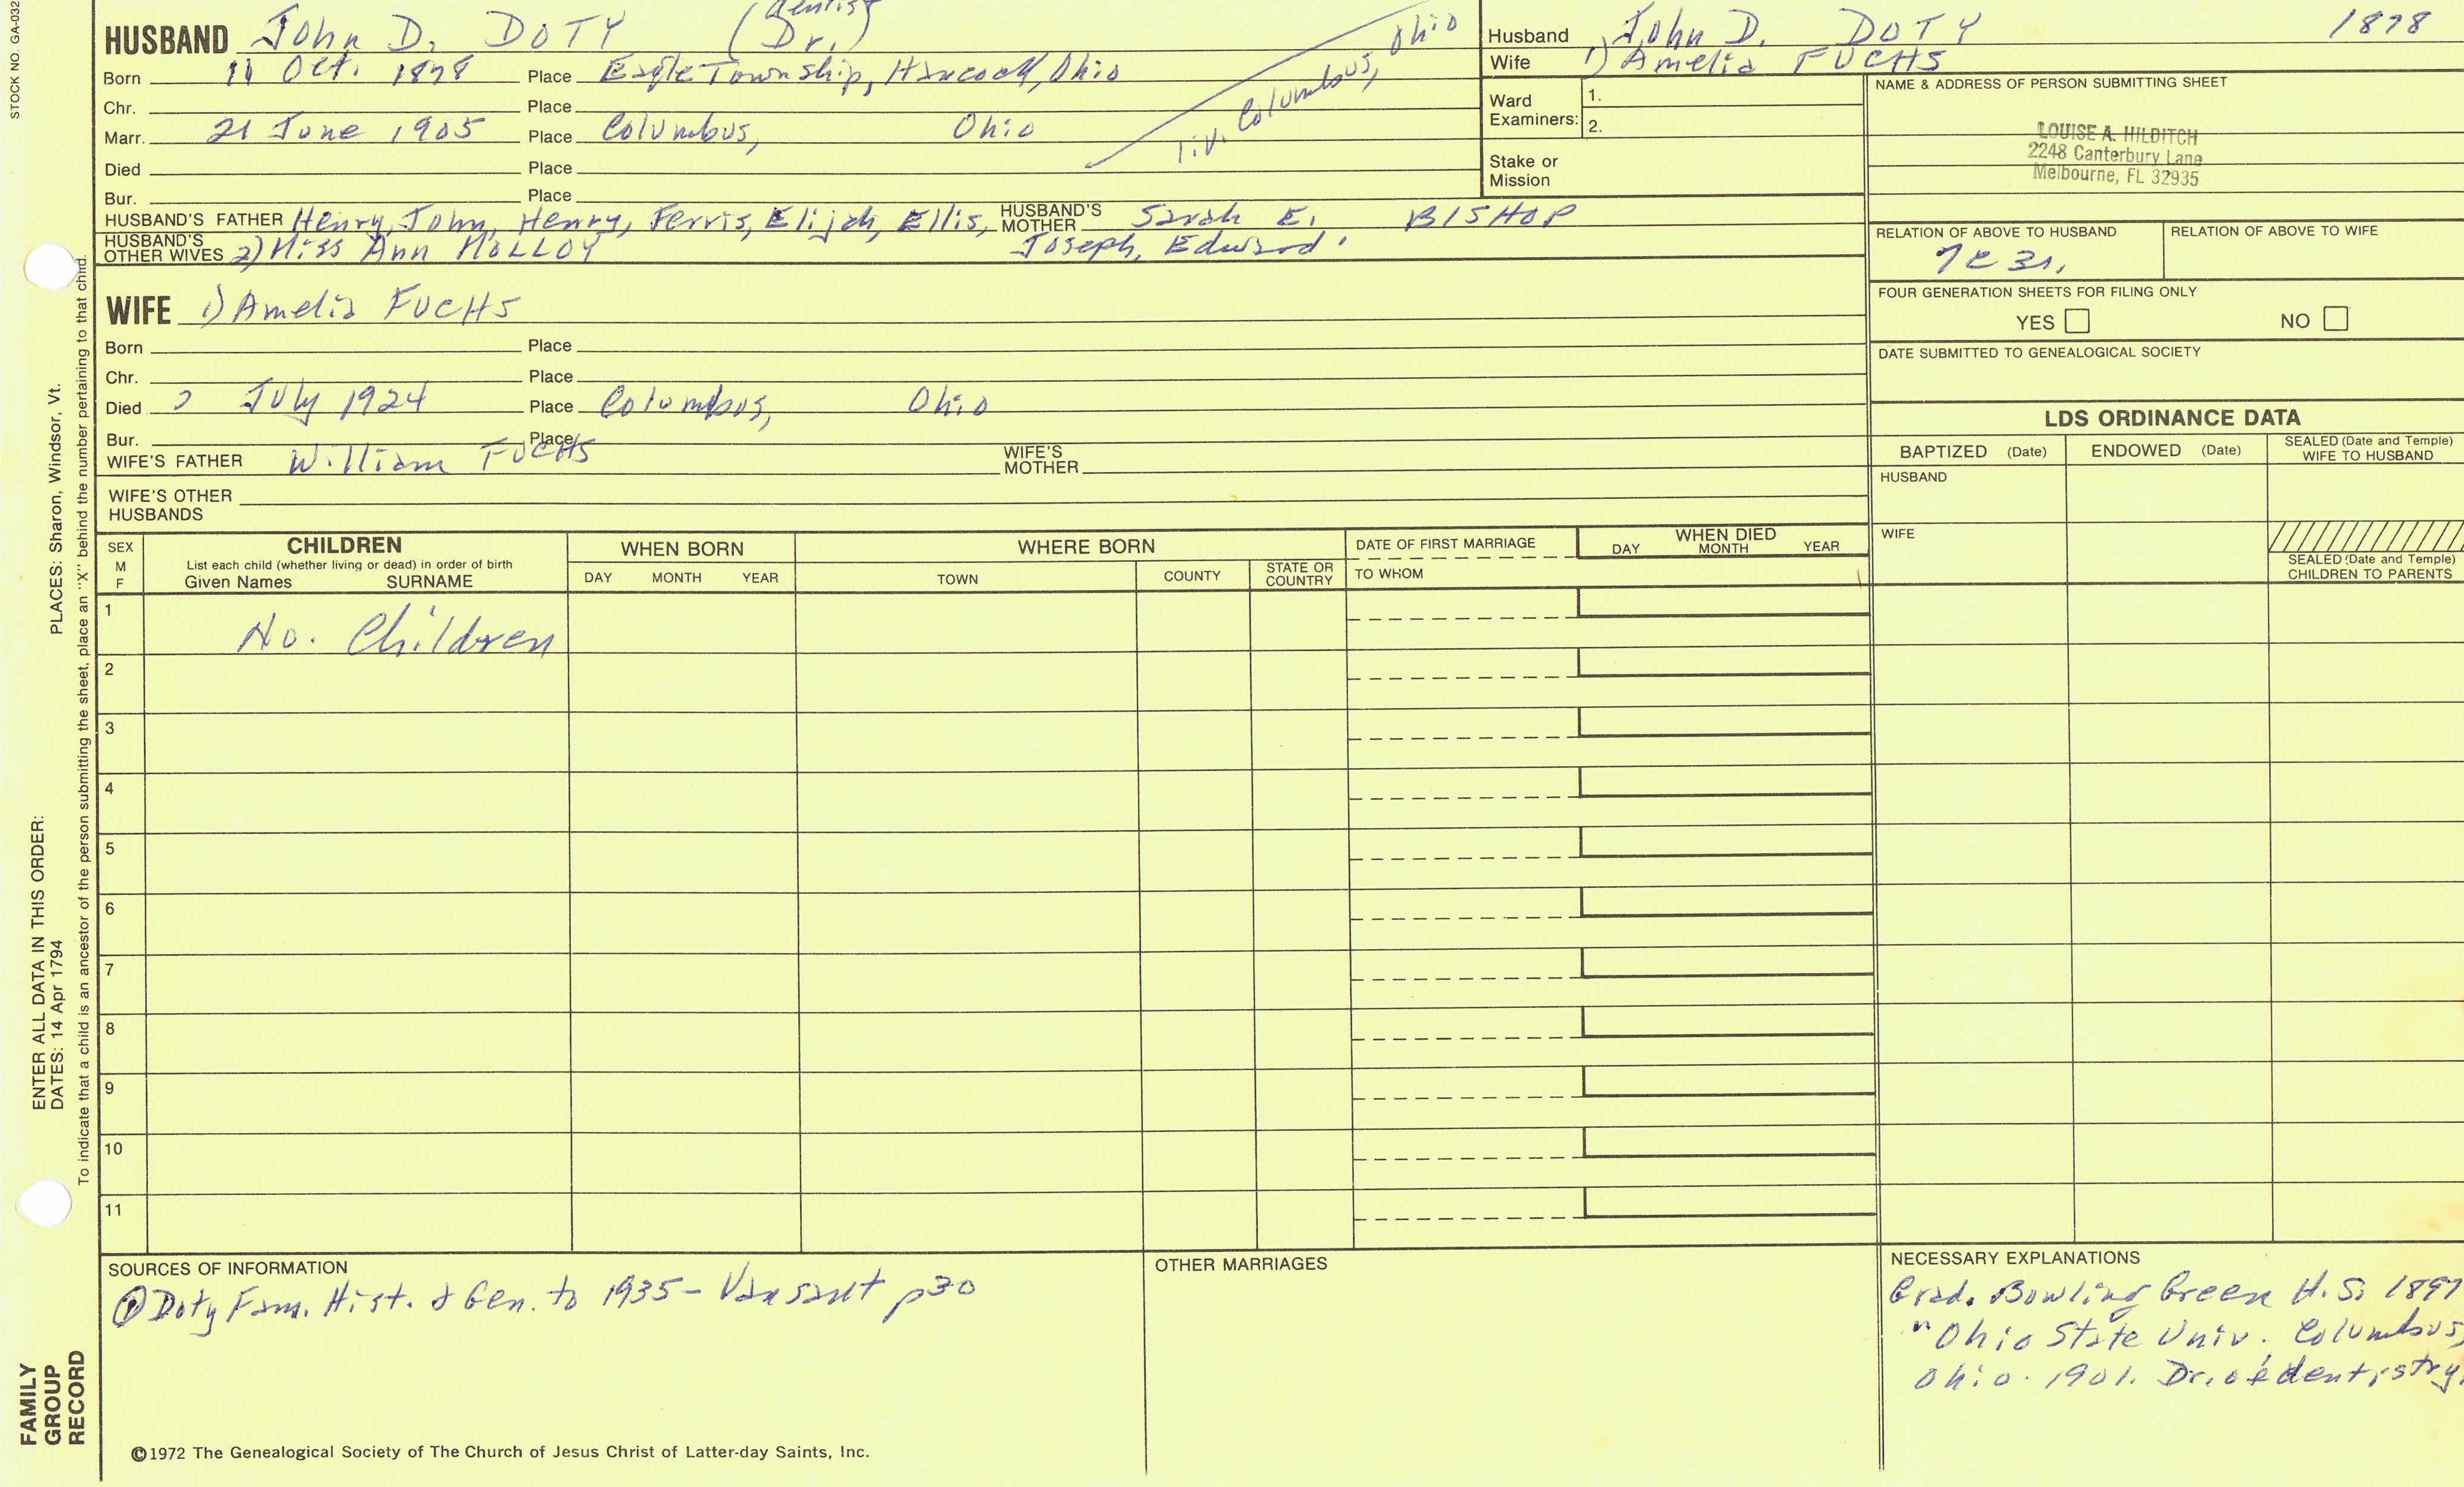 STOCK NO. GA-032
HUSBAND John D. DOTY (Dr.) dentist
Born 11 Oct. 1878 Place Eagle Township, Hancock, Ohio
Chr. Place
Marr. 21 June 1905 Place Columbus, Ohio
Died Place
Bur. Place
Liv. Columbus, Ohio
HUSBAND'S FATHER Henry, John, Henry, Ferris, Elijah, Ellis, HUSBAND'S MOTHER Sarah E. BISHOP
Joseph, Edward.
HUSBAND'S OTHER WIVES 2) Miss Ann MOLLOY
WIFE 1) Amelia FUCHS
Born Place
Chr. Place
Died July 1924 Place Columbus, Ohio
Bur. Place
WIFE'S FATHER William FUCHS WIFE'S MOTHER
WIFE'S OTHER HUSBANDS
Husband John D. DOTY 1878
Wife 1) Amelia FUCHS
Ward Examiners: 1.
2.
Stake or Mission
NAME & ADDRESS OF PERSON SUBMITTING SHEET
LOUISE A. HILDITCH
2248 Canterbury Lane
Melbourne, FL 32935
RELATION OF ABOVE TO HUSBAND RELATION OF ABOVE TO WIFE
FOUR GENERATION SHEETS FOR FILING ONLY
YES NO
DATE SUBMITTED TO GENEALOGICAL SOCIETY
LDS ORDINANCE DATA
BAPTIZED (Date) ENDOWED (Date) SEALED (Date and Temple) WIFE TO HUSBAND
HUSBAND
WIFE
SEALED (Date and Temple) CHILDREN TO PARENTS
SEX M F
CHILDREN
List each child (whether living or dead) in order of birth
Given Names SURNAME
WHEN BORN
DAY MONTH YEAR
WHERE BORN
TOWN COUNTY STATE OR COUNTRY
DATE OF FIRST MARRIAGE
TO WHOM
WHEN DIED
DAY MONTH YEAR
1 No. Children
2
3
4
5
6
7
8
9
10
11
SOURCES OF INFORMATION
① Doty Fam. Hist. & Gen. to 1935 - Van Sant p30
OTHER MARRIAGES
NECESSARY EXPLANATIONS
Grad. Bowling Green H.S. 1897
" Ohio State Univ. Columbus,
Ohio. 1901. Dr. of dentistry.
©1972 The Genealogical Society of The Church of Jesus Christ of Latter-day Saints, Inc.
FAMILY GROUP RECORD
ENTER ALL DATA IN THIS ORDER:
DATES: 14 Apr 1794
PLACES: Sharon, Windsor, Vt.
To indicate that a child is an ancestor of the person submitting the sheet, place an "X" behind the number pertaining to that child.